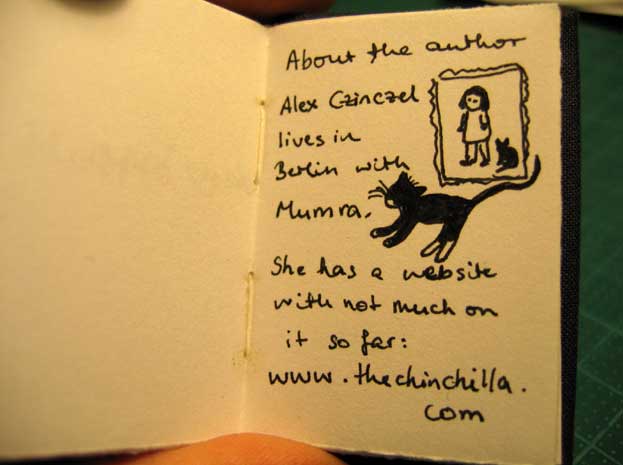 About the author
Alex Czinczel
lives in
Berlin with
Mumra.
She has a website
with not much on
it so far:
www.thechinchilla.
com